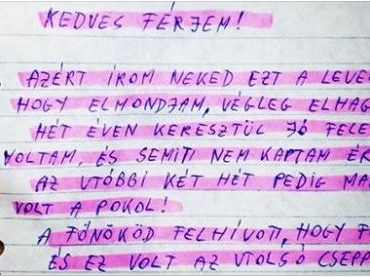 KEDVES FÉRJEM!
AZÉRT ÍROM NEKED EZT A LEVE
HOGY ELMONDJAM, VÉGLEG ELHAG
HÉT ÉVEN KERESZTÜL JÓ FELE
VOLTAM, ÉS SEMITI NEM KAPTAM ÉR
AZ UTÓBBI KÉT HÉT PEDIG MA
VOLT A POKOL!
A FŐNÖKÖD FELHÍVOTT, HOGY F
ÉS EZ VOLT AZ UTOLSÓ CSEPP